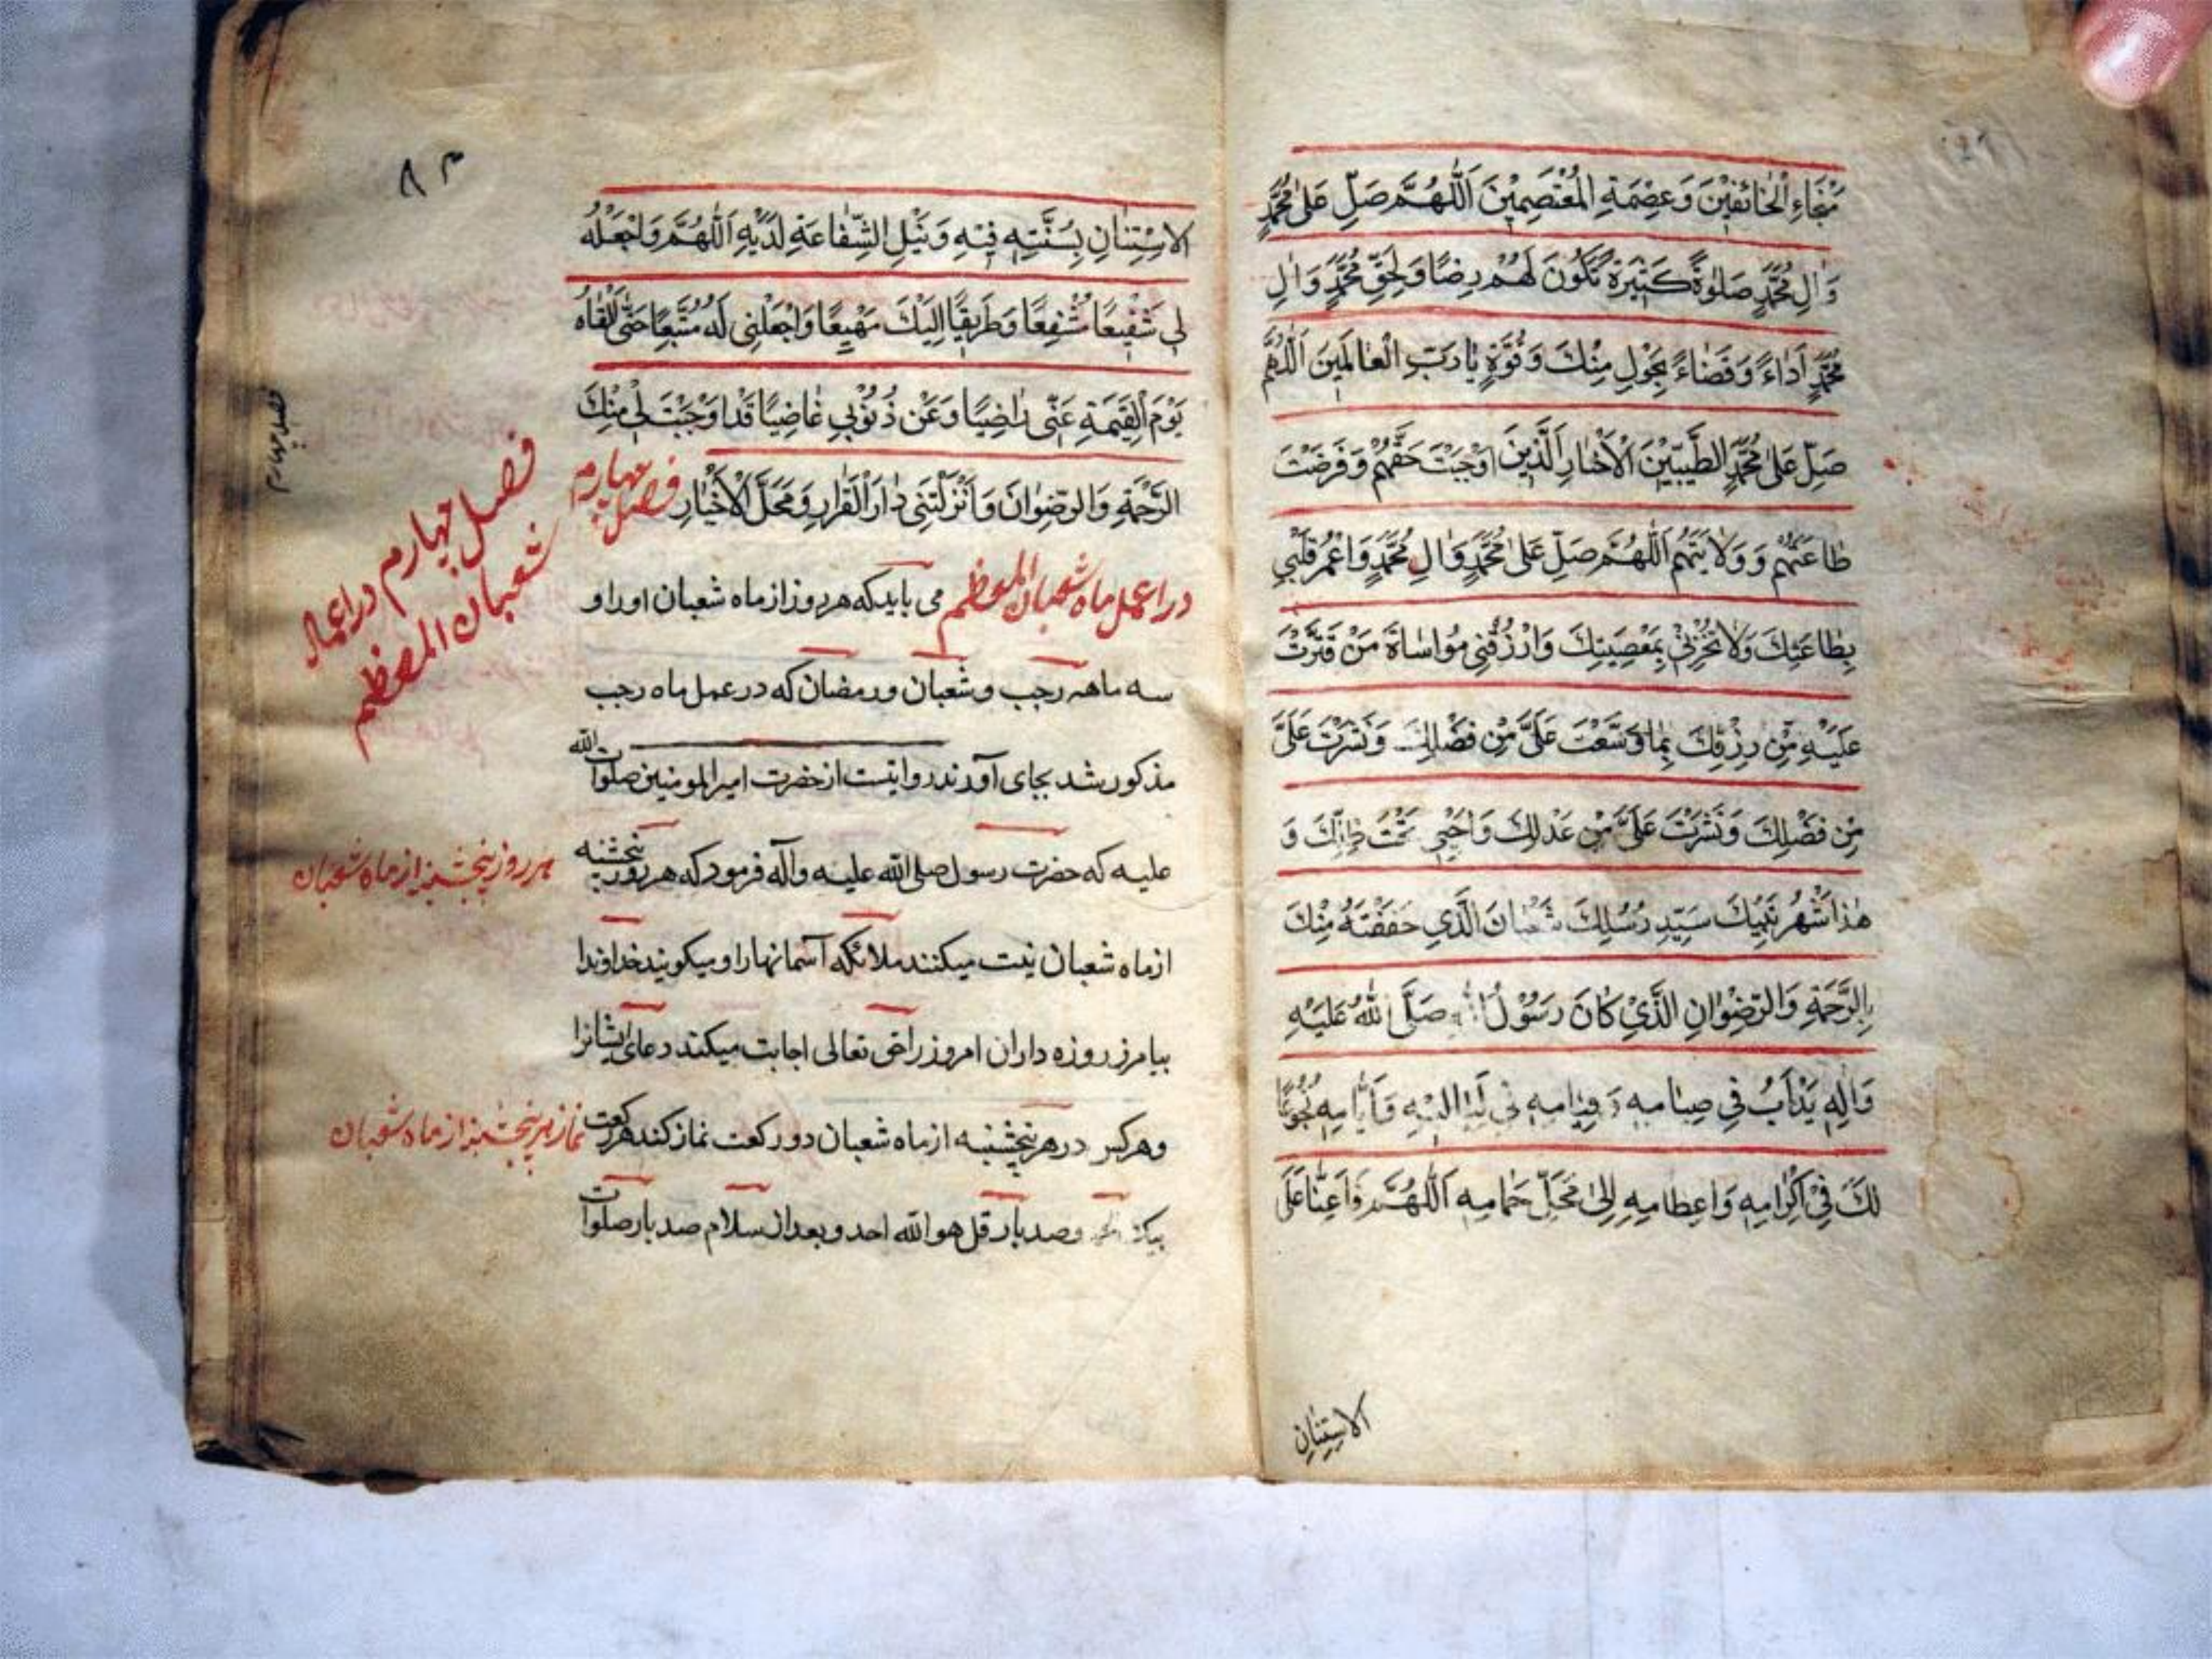 مَنْجَاءِ الْخَائِفِيْنَ وَعِصْمَةِ الْمُعْتَصِمِيْنَ اَللّٰهُمَّ صَلِّ عَلٰى مُحَمَّدٍ
وَاٰلِ مُحَمَّدٍ صَلٰوةً كَثِيْرَةً تَكُوْنَ لَهُمْ رِضًا وَلِحَقِّ مُحَمَّدٍ وَاٰلِ
مُحَمَّدٍ اَدَاءً وَقَضَاءً بِحَوْلٍ مِنْكَ وَقُوَّةٍ يَا رَبَّ الْعَالَمِيْنَ اَللّٰهُمَّ
صَلِّ عَلٰى مُحَمَّدٍ الطَّيِّبِيْنَ الْاَخْيَارِ الَّذِيْنَ اَوْجَبْتَ حَقَّهُمْ وَفَرَضْتَ
طَاعَتَهُمْ وَوَلَايَتَهُمْ اَللّٰهُمَّ صَلِّ عَلٰى مُحَمَّدٍ وَاٰلِ مُحَمَّدٍ وَاعْمُرْ قَلْبِيْ
بِطَاعَتِكَ وَلَا تُخْزِنِيْ بِمَعْصِيَتِكَ وَارْزُقْنِيْ مُوَاسَاةَ مَنْ قَتَّرْتَ
عَلَيْهِ مِنْ رِزْقِكَ بِمَا وَسَّعْتَ عَلَيَّ مِنْ فَضْلِكَ وَنَشَرْتَ عَلَيَّ
مِنْ فَضْلِكَ وَنَشَرْتَ عَلَيَّ مِنْ عَدْلِكَ وَاَحْيِنِيْ تَحْتَ ظِلِّكَ وَ
هٰذَا شَهْرُ نَبِيِّكَ سَيِّدِ رُسُلِكَ شَعْبَانَ الَّذِيْ حَفَفْتَهُ مِنْكَ
بِالرَّحْمَةِ وَالرِّضْوَانِ الَّذِيْ كَانَ رَسُوْلُ اللّٰهِ صَلَّى اللّٰهُ عَلَيْهِ
وَاٰلِهِ يَدْاَبُ فِيْ صِيَامِهِ وَقِيَامِهِ فِيْ لَيَالِيْهِ وَاَيَّامِهِ بُخُوْعًا
لَكَ فِيْ اِكْرَامِهِ وَاِعْظَامِهِ اِلٰى مَحَلِّ حِمَامِهِ اَللّٰهُمَّ فَاَعِنَّا عَلَى
الاِسْتِنَانِ
٨٣
الاِسْتِنَانِ بِسُنَّتِهِ فِيْهِ وَنَيْلِ الشَّفَاعَةِ لَدَيْهِ اَللّٰهُمَّ وَاجْعَلْهُ
لِي شَفِيْعًا مُشَفَّعًا وَطَرِيْقًا اِلَيْكَ مَهْيَعًا وَاجْعَلْنِيْ لَهُ مُتَّبِعًا حَتّٰى اَلْقَاهُ
يَوْمَ الْقِيٰمَةِ عَنِّيْ رَاضِيًا وَعَنْ ذُنُوْبِيْ غَاضِيًا قَدْ اَوْجَبْتَ لِيْ مِنْكَ
الرَّحْمَةَ وَالرِّضْوَانَ وَاَنْزَلْتَنِيْ دَارَ الْقَرَارِ وَمَحَلَّ الْاَخْيَارِ فصل چهارم
در اعمل ماه شعبان المعظم می باید که هر روز از ماه شعبان اوراد
سه ماهه رجب و شعبان و رمضان که در عمل ماه رجب
مذکور شد بجای آورند روایتست از حضرت امیرالمومنین صلوات الله
علیه که حضرت رسول صلی الله علیه وآله فرمود که هر روز پنجشنبه
از ماه شعبان زینت میکنند ملائکه آسمانها را و میکویند خداوندا
بیامرز روزه داران امروز را حق تعالی اجابت میکند دعای ایشانرا
وهرکس در هر پنجشنبه از ماه شعبان دو رکعت نماز کند هر رکعت
وصد بار قل هو الله احد و بعد از سلام صد بار صلوات
فصل چهارم در اعمال
شعبان المعظم
هر روز پنجشنبه از ماه شعبان
نماز هر پنجشنبه از ماه شعبان